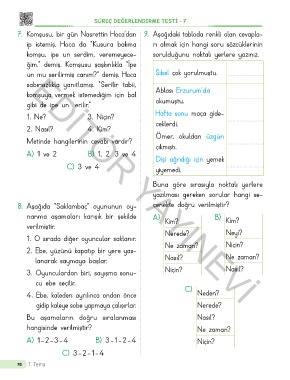 SÜREÇ DEĞERLENDİRME TESTİ - 7
7. Komşusu, bir gün Nasrettin Hoca'dan
ip istemiş. Hoca da "Kusura bakma
komşu, ipe un serdim, veremeyece-
ğim." demiş. Komşusu şaşkınlıkla "İpe
un mu serilirmiş canım?" demiş. Hoca
sabırsızlıkla yanıtlamış. "Serilir tabii,
komşuya vermek istemediğim için bal
gibi de ipe un serilir."
1. Ne?
3. Niçin?
2. Nasıl?
4. Kim?
Metinde hangilerinin cevabı vardır?
A) 1 ve 2
B) 1, 2, 3 ve 4
C) 3 ve 4
8. Aşağıda "Saklambaç" oyununun oy-
nanma aşamaları karışık bir şekilde
verilmiştir.
1. O sırada diğer oyuncular saklanır.
2. Ebe, yüzünü kapatıp bir yere yas-
lanarak saymaya başlar.
3. Oyunculardan biri, sayışma sonu-
cu ebe seçilir.
4. Ebe, kaleden ayrılınca ondan önce
gidip kaleye sobe yapmaya çalışırlar.
Bu aşamaların doğru sıralanması
hangisinde verilmiştir?
A) 1-2-3-4
B) 3-1-2-4
C) 3-2-1-4
9. Aşağıdaki tabloda renkli olan cevapla-
rı almak için hangi soru sözcüklerinin
sorulduğunu noktalı yerlere yazınız.
Sibel çok yorulmuştu.
Ablası Erzurum'da
okumuştu.
Hafta sonu maça gide-
ceklerdi.
Ömer, okuldan üzgün
çıkmıştı.
Dişi ağrıdığı için yemek
yiyemedi.
Buna göre sırasıyla noktalı yerlere
yazılması gereken sorular hangi se-
çenekte doğru verilmiştir?
A)
Kim?
Nerede?
Ne zaman?
Nasıl?
Niçin?
B)
Kim?
Neyi?
Niçin?
Ne zaman?
Nasıl?
C)
Neden?
Nerede?
Nasıl?
Ne zaman?
Niçin?
1. Tema
EDİTÖR YAYINEVİ